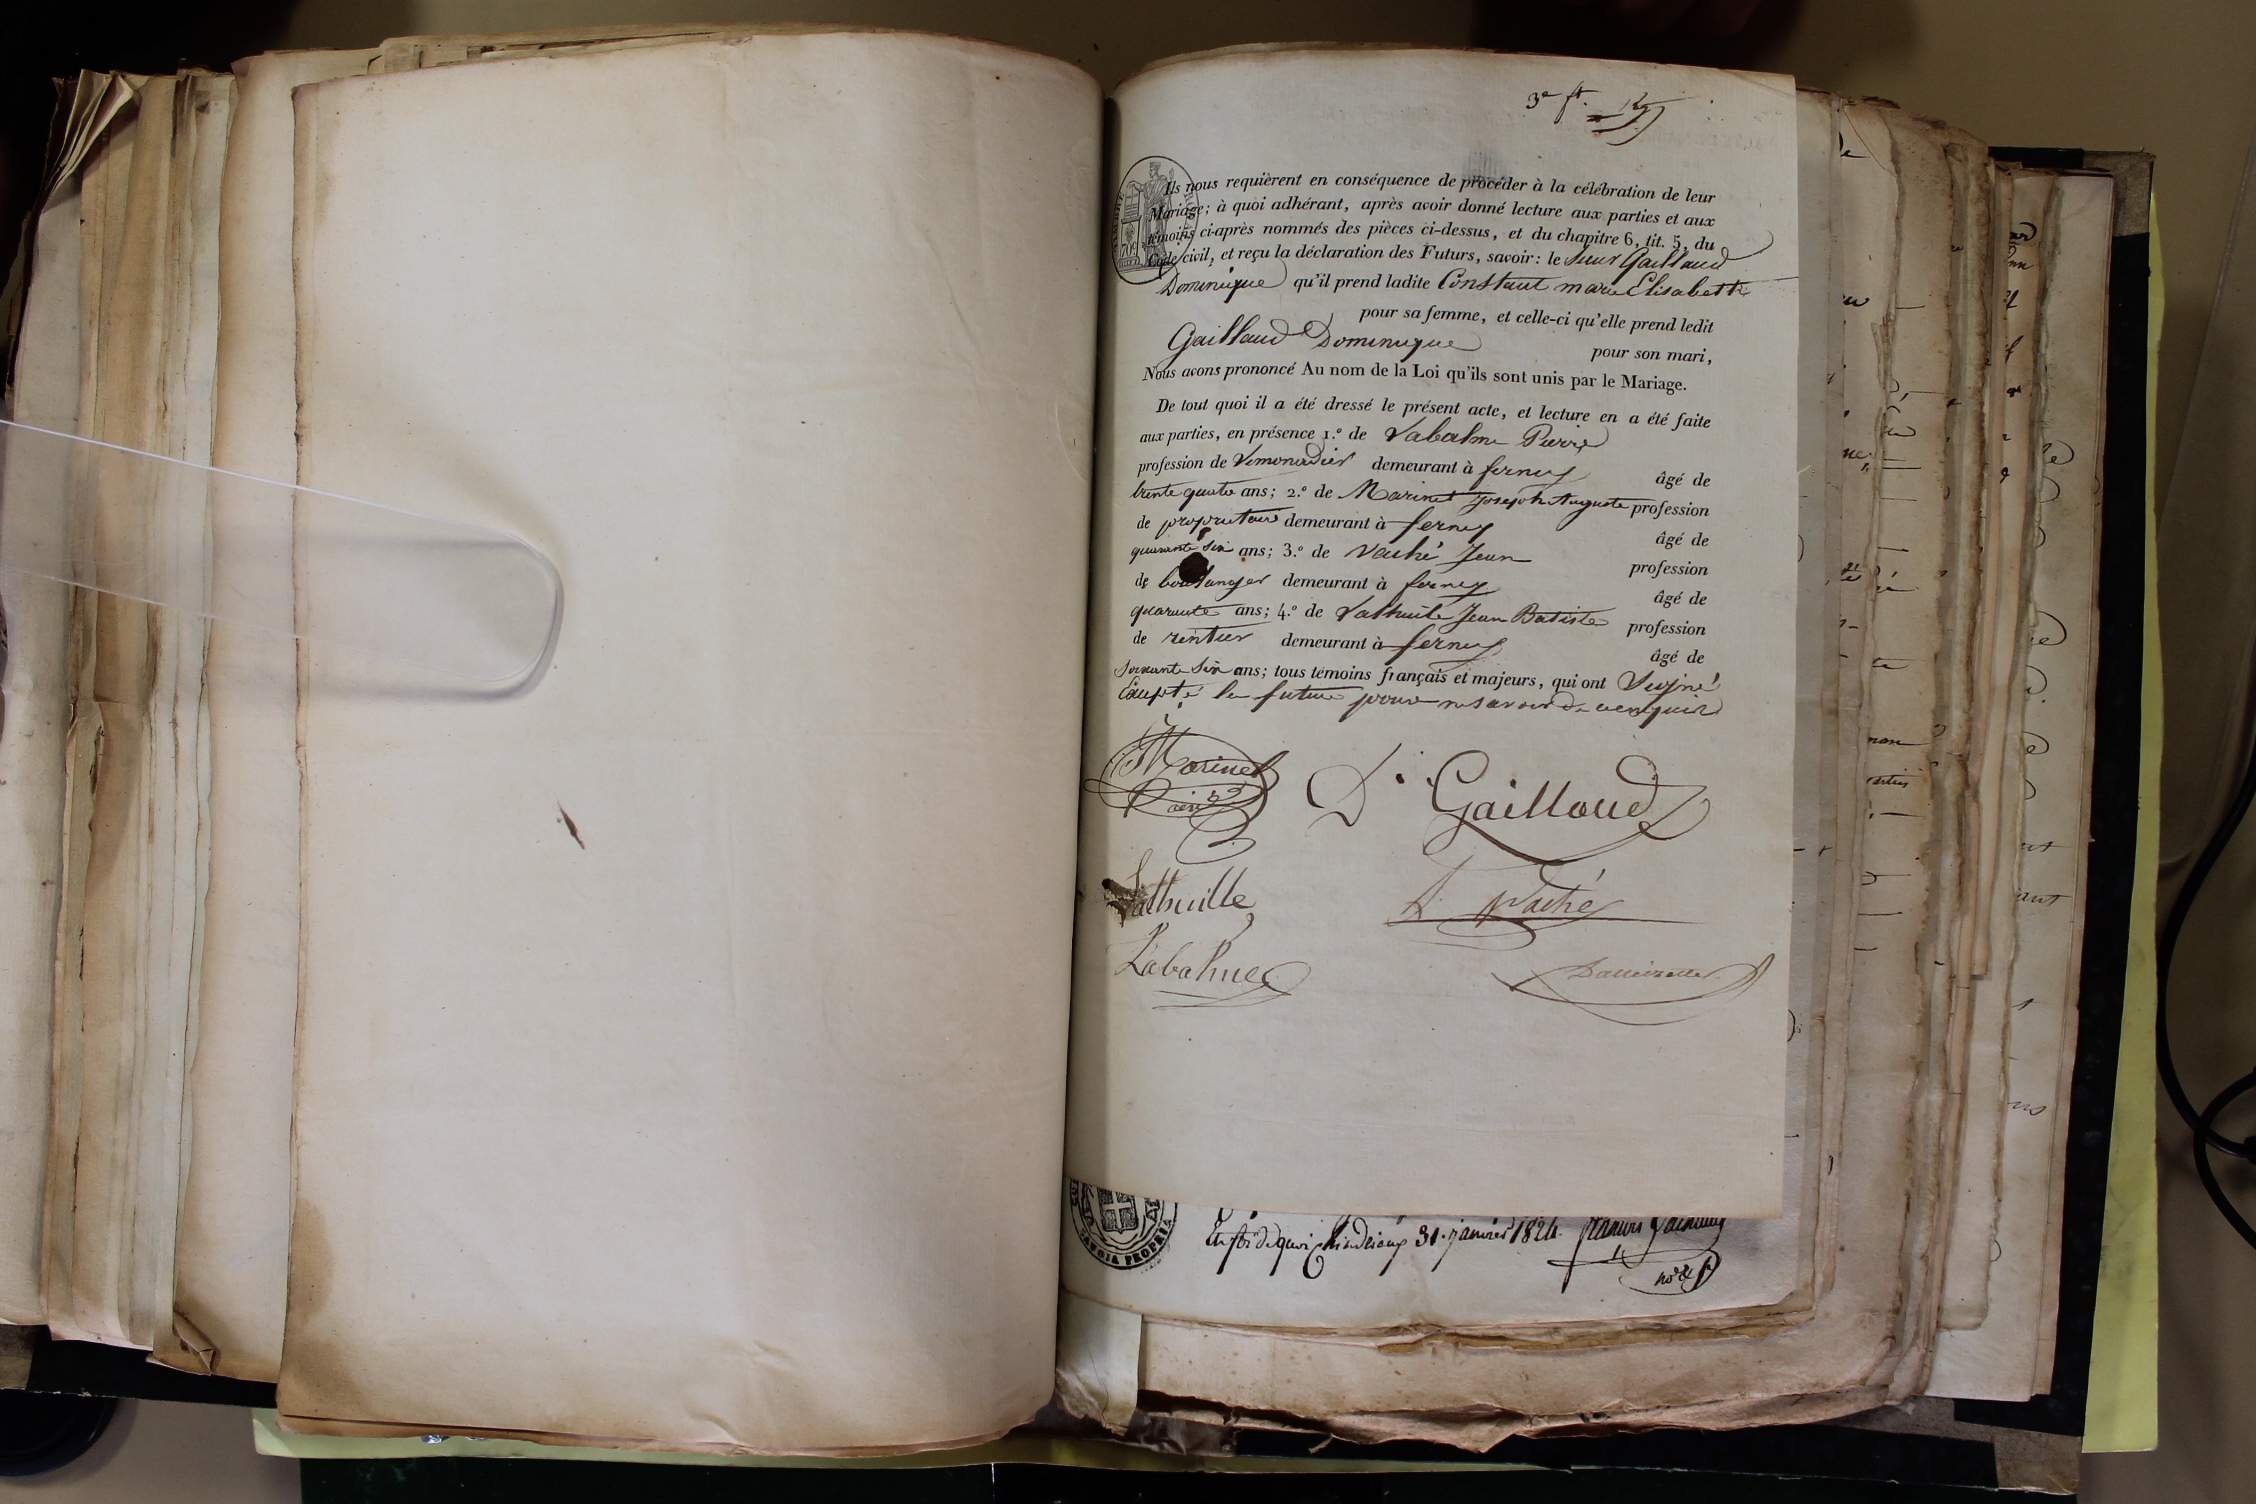 3e ft.
Ils nous requièrent en conséquence de procéder à la célébration de leur
Mariage; à quoi adhérant, après avoir donné lecture aux parties et aux
témoins ci-après nommés des pièces ci-dessus, et du chapitre 6, tit. 5, du
Code civil, et reçu la déclaration des Futurs, savoir: le Sieur Gailloud
Dominique qu'il prend ladite Constant marie Elisabeth
pour sa femme, et celle-ci qu'elle prend ledit
Gailloud Dominique pour son mari,
Nous avons prononcé Au nom de la Loi qu'ils sont unis par le Mariage.
De tout quoi il a été dressé le présent acte, et lecture en a été faite
aux parties, en présence 1.º de Labalme Pierre
profession de Limonadier demeurant à ferney âgé de
trente quatre ans; 2.º de Marinet Joseph Auguste profession
de propriétaire demeurant à ferney âgé de
quarante six ans; 3.º de Vaché Jean profession
de boulanger demeurant à ferney âgé de
quarante ans; 4.º de Lathuile Jean Batiste profession
de rentier demeurant à ferney âgé de
soixante six ans; tous témoins français et majeurs, qui ont Signé
Excepté la future pour ne savoir de ce enquis
Marinet
ainé
D. Gailloud
Lathuille
J. Vaché
Labalme
SAVOIA PROPRIA
En foi de quoi 31. janvier 1824.